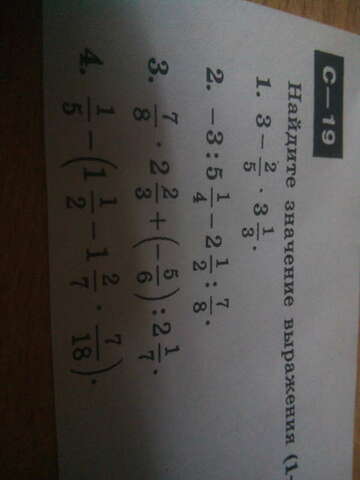 С—19
Найдите значение выражения (1-
1. 3 - 2/5 · 3 1/3.
2. -3 : 5 1/4 - 2 1/2 : 7/8.
3. 7/8 · 2 2/3 + (-5/6) : 2 1/7.
4. 1/5 - (1 1/2 - 1 2/7 · 7/18).